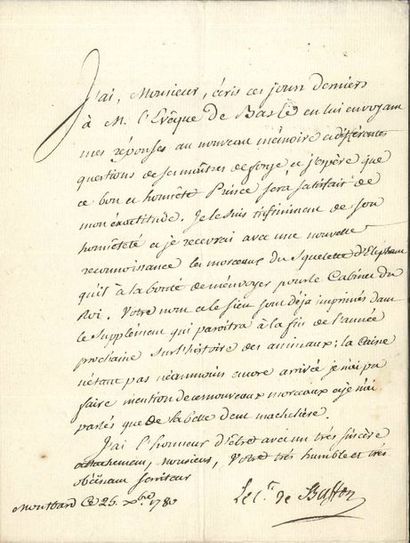 J'ai, Monsieur, écris ces jours derniers
à M. l'Evêque de Basle en lui envoyant
mes réponses au nouveau mémoire et différentes
questions de ses maîtres de forge et j'espère que
ce bon et honnête Prince sera satisfait de
mon exactitude. Je le suis infiniment de son
honnêteté et je recevrai avec une nouvelle
reconnoissance les morceaux du squelette d'Elephant
qu'il à la bonté de m'envoyer pour le Cabinet du
Roi. Votre nom et le sien sont déja imprimés dans
le supplément qui paroitra à la fin de l'année
prochaine sur l'histoire des animaux; la Caisse
n'étant pas néanmoins encore arrivée je n'ai pu
faire mention de ces nouveaux morceaux et je n'ai
parlés que de la belle dent machelière.
J'ai l'honneur d'être avec un très sincère
attachement, Monsieur, Votre très humble et très
obéissant serviteur
Le Cte. de Buffon
Montbard Ce 25. Xbre 1780